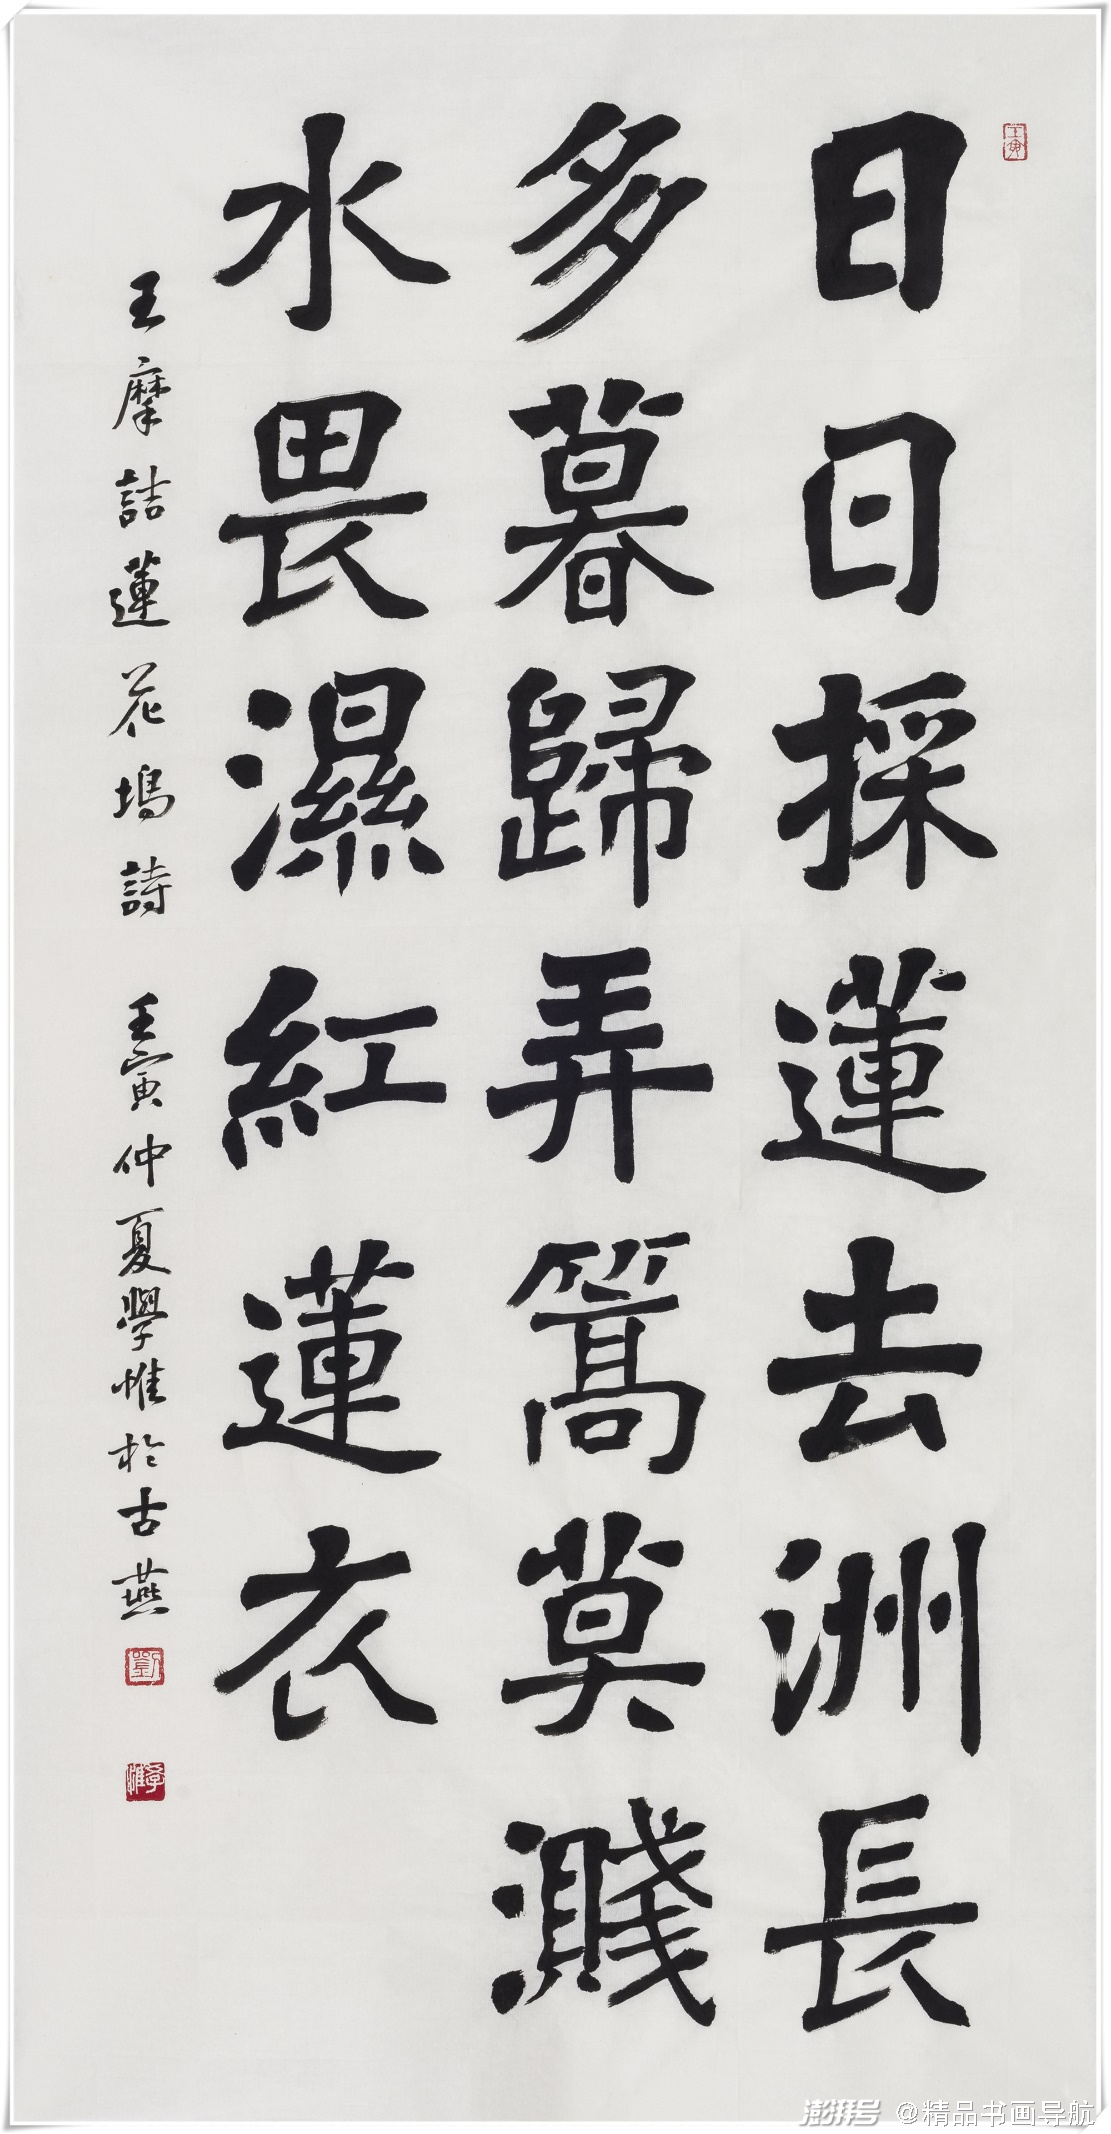 壬寅
日日採蓮去洲長
多暮歸弄篙莫濺
水畏濕紅蓮衣
王摩詰蓮花塢詩 壬寅仲夏學惟於古燕
劉
學惟
澎湃号 @精品书画导航